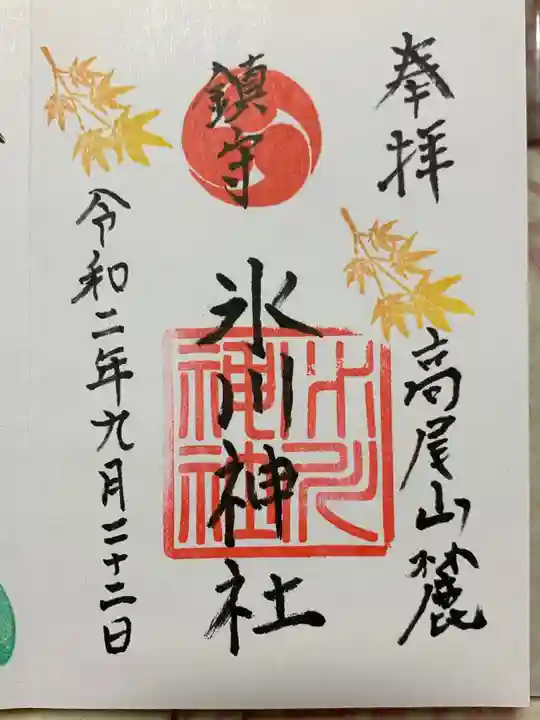 奉拝
高尾山麓
鎮守
氷川神社
氷川
神社
令和二年九月二十二日